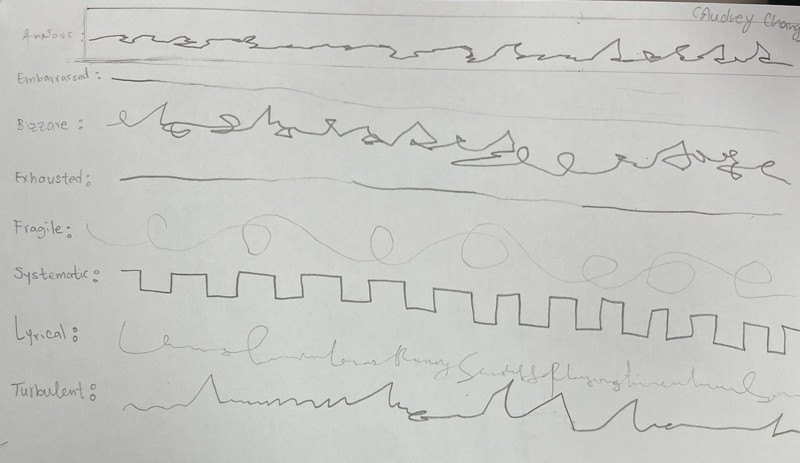 (Audrey Chang
Anxious:
Embarrassed:
Bizzare:
Exhausted:
Fragile:
Systematic:
Lyrical:
Turbulent: